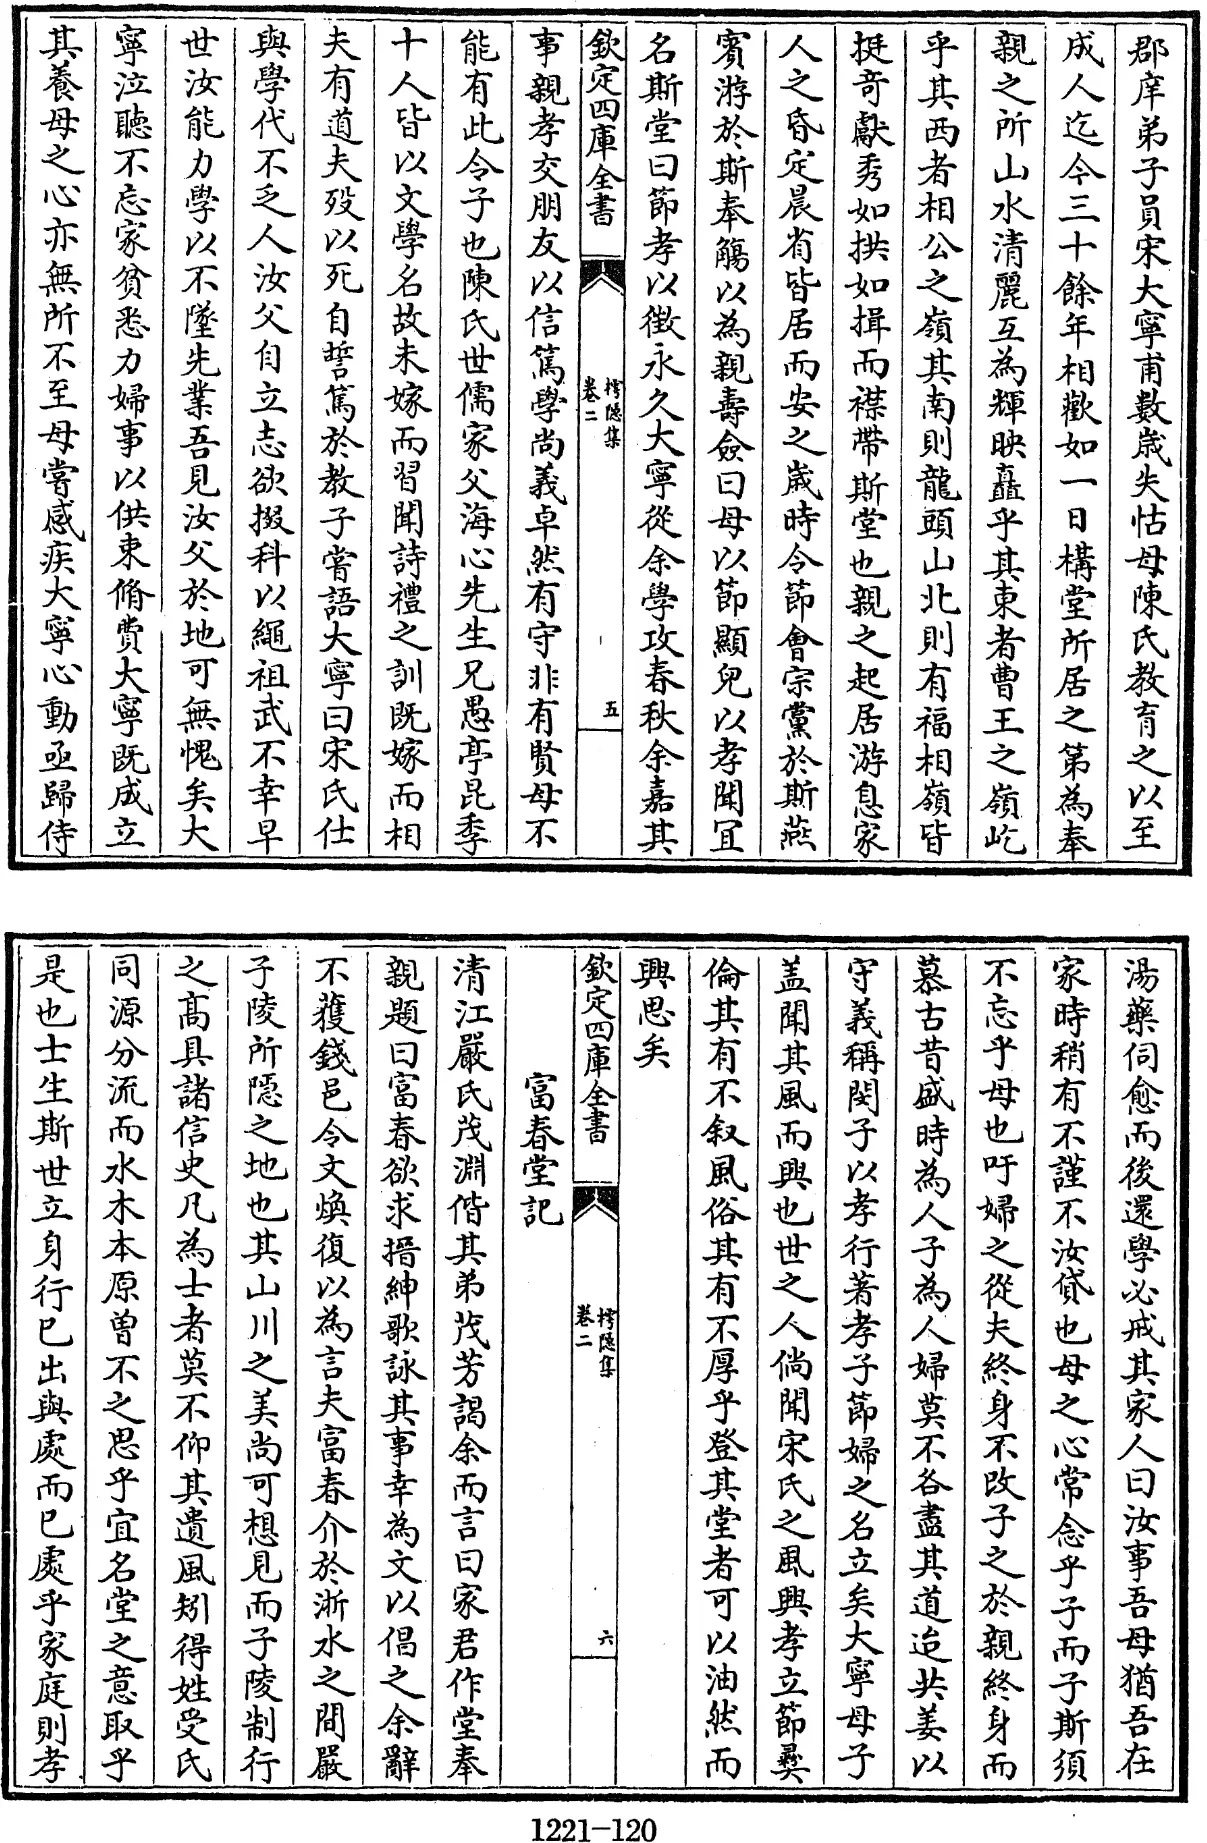 郡庠弟子員宋大寧甫數歲失怙母陳氏教育之以至
成人迄今三十餘年相歡如一日構堂所居之第為奉
親之所山水清麗互為輝映矗乎其東者曹王之嶺屹
乎其西者相公之嶺其南則龍頭山北則有福相嶺皆
挺奇獻秀如拱如揖而襟帶斯堂也親之起居游息家
人之昏定晨省皆居而安之歲時令節會宗黨於斯燕
賓游於斯奉觴以為親壽僉曰母以節顯兒以孝聞宜
名斯堂曰節孝以徵永久大寧從余學攻春秋余嘉其
欽定四庫全書
樗隱集
卷二
五
事親孝交朋友以信篤學尚義卓然有守非有賢母不
能有此令子也陳氏世儒家父海心先生兄愚亭昆季
十人皆以文學名故未嫁而習聞詩禮之訓既嫁而相
夫有道夫歿以死自誓篤於教子嘗語大寧曰宋氏仕
與學代不乏人汝父自立志欲掇科以繩祖武不幸早
世汝能力學以不墜先業吾見汝父於地可無愧矣大
寧泣聽不忘家貧悉力婦事以供束脩費大寧既成立
其養母之心亦無所不至母嘗感疾大寧心動亟歸侍
湯藥伺愈而後還學必戒其家人曰汝事吾母猶吾在
家時稍有不謹不汝貸也母之心常念乎子而子斯須
不忘乎母也吁婦之從夫終身不改子之於親終身而
慕古昔盛時為人子為人婦莫不各盡其道迨共姜以
守義稱閔子以孝行著孝子節婦之名立矣大寧母子
盖聞其風而興也世之人倘聞宋氏之風興孝立節彞
倫其有不叙風俗其有不厚乎登其堂者可以油然而
興思矣
欽定四庫全書
樗隱集
卷二
六
富春堂記
清江嚴氏茂淵偕其弟茂芳謁余而言曰家君作堂奉
親題曰富春欲求搢紳歌詠其事幸為文以倡之余辭
不獲錢邑令文煥復以為言夫富春介於浙水之間嚴
子陵所隱之地也其山川之美尚可想見而子陵制行
之高具諸信史凡為士者莫不仰其遺風矧得姓受氏
同源分流而水木本原曽不之思乎宜名堂之意取乎
是也士生斯世立身行已出與處而已處乎家庭則孝
1221-120